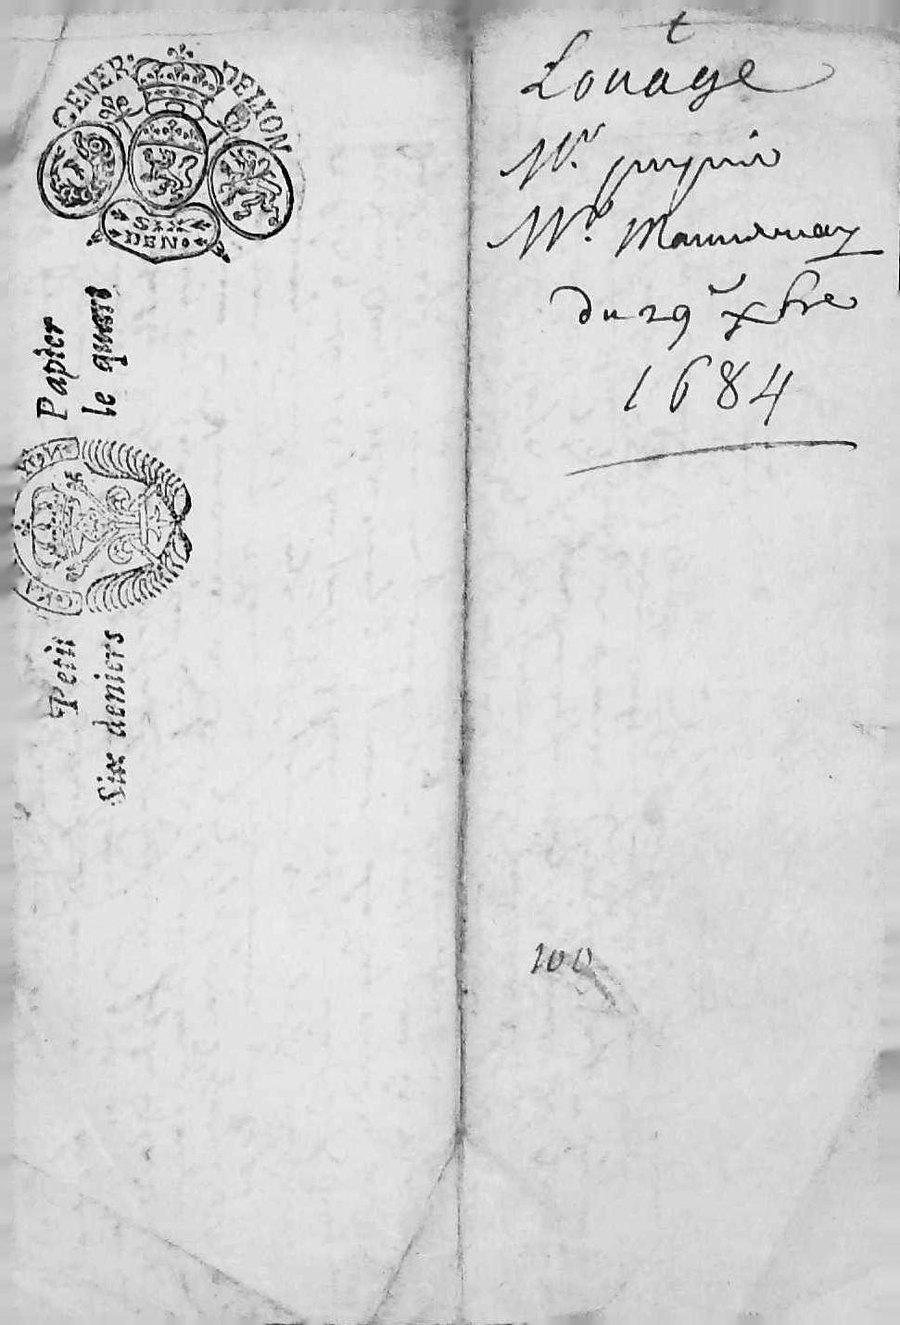 GENER. DE LION
SIX
DEN.
Papier
le quart
Petit
Six deniers
t
Louage
Mr.
Mr.
du 29e xbre
1684
100